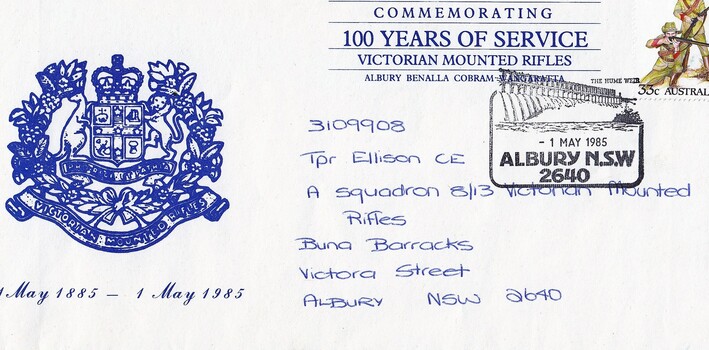 COMMEMORATING
100 YEARS OF SERVICE
VICTORIAN MOUNTED RIFLES
ALBURY BENALLA COBRAM WANGARATTA
33c AUSTRAL
THE HUME WEIR
- 1 MAY 1985
ALBURY N.S.W
2640
3109908
Tpr Ellison CE
A Squadron 8/13 Victorian Mounted
Rifles
Buna Barracks
Victora Street
ALBURY NSW 2640
VICTORIAN MOUNTED RIFLES
1 May 1885 – 1 May 1985